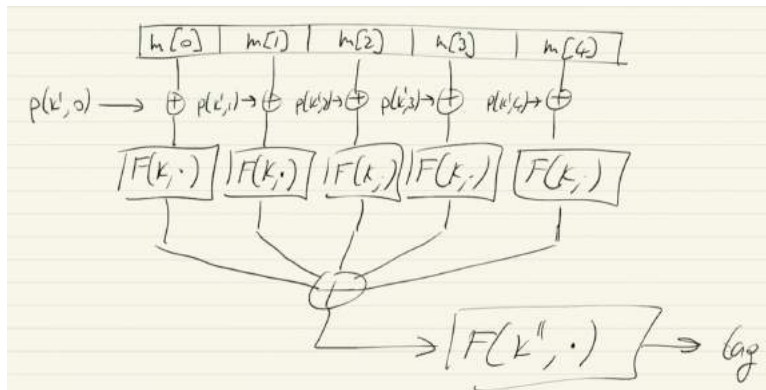 m[0] m[1] m[2] m[3] m[4]
p(k',0) → ⊕ p(k',1)→ ⊕ p(k',2)→ ⊕ p(k',3)→ ⊕ p(k',4)→ ⊕
F(k,·) F(k,·) F(k,·) F(k,·) F(k,·)
F(k'',·) → tag